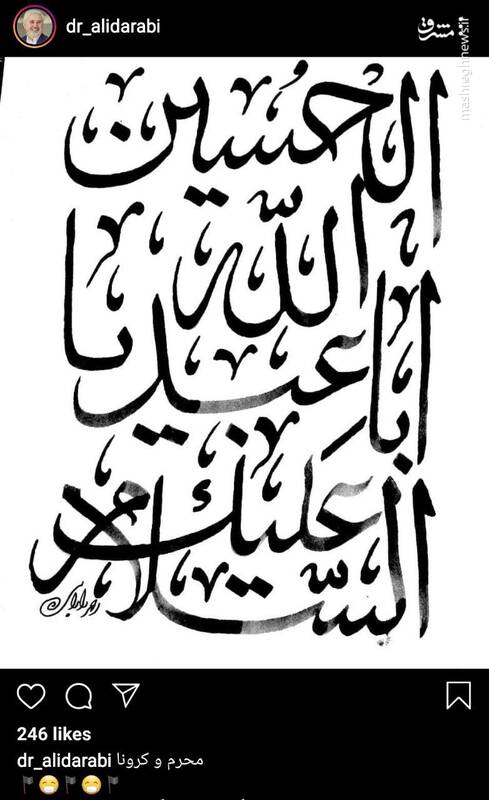 dr_alidarabi
مشرق
mashreghnews.ir
السّلام عَلیک
یا اباعَبد
اللّه
الحُسین
246 likes
dr_alidarabi محرم و کرونا
🏴😷🏴😷🏴